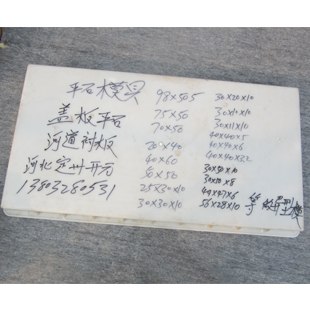 平石模具
盖板平石
河道衬板
河北定州开元
13803280531
98×505
75×50
70×50
70×40
40×60
50×50
25×30×10
30×30×10
30×20×10
30×10×10
30×11×10
40×40×5
40×40×6
40×40×32
30×50×10
30×10×8
49×47×6
56×28×10
等